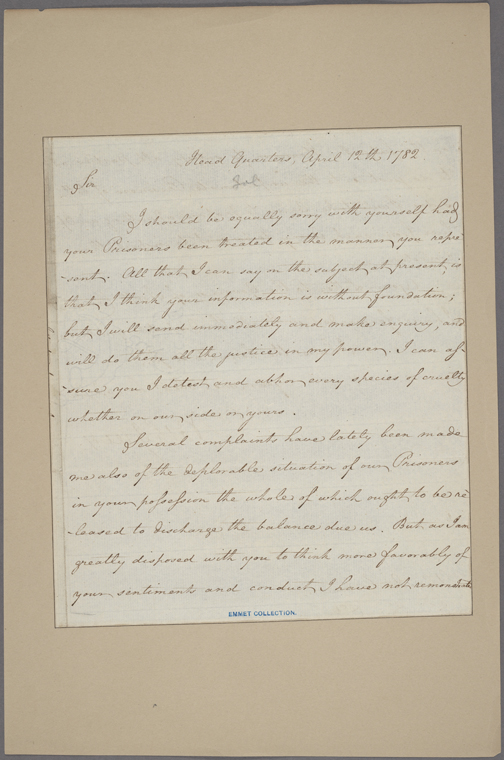 Head Quarters, April 12th 1782.
Sir
I should be equally sorry with yourself had
your Prisoners been treated in the manner you repre
-sent. All that I can say on the subject at present, is
that I think your information is without foundation;
but I will send immediately and make enquiry, and
will do them all the justice in my power. I can as-
-sure you I detest and abhor every species of cruelty
whether on our side or yours.
Several complaints have lately been made
me also of the deplorable situation of our Prisoners
in your possession the whole of which ought to be re
-leased to discharge the balance due us. But as I am
greatly disposed with you to think more favorably of
your sentiments and conduct I have not remonstrate
EMMET COLLECTION.